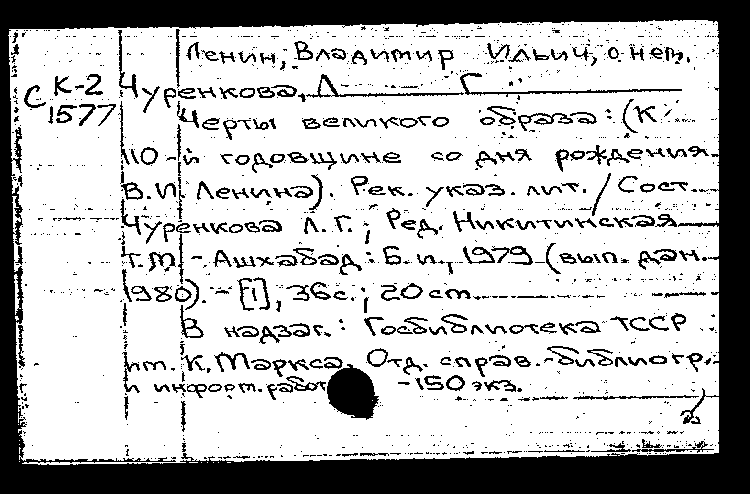 Ленин, Владимир Ильич, о нем.
С К-2 Чуренкова, Л. Г.
1577 Черты великого образа: (К
110-й годовщине со дня рождения
В.И. Ленина). Рек. указ. лит. / Сост.
Чуренкова Л.Г.; Ред. Никитинская
Т.М. - Ашхабад: Б.и., 1979 (вып. дан.
1980). - [1], 36 с.; 20 см.
В надзаг.: Госбиблиотека ТССР
им. К. Маркса. Отд. справ.-библиогр.
и информ. работ - 150 экз.